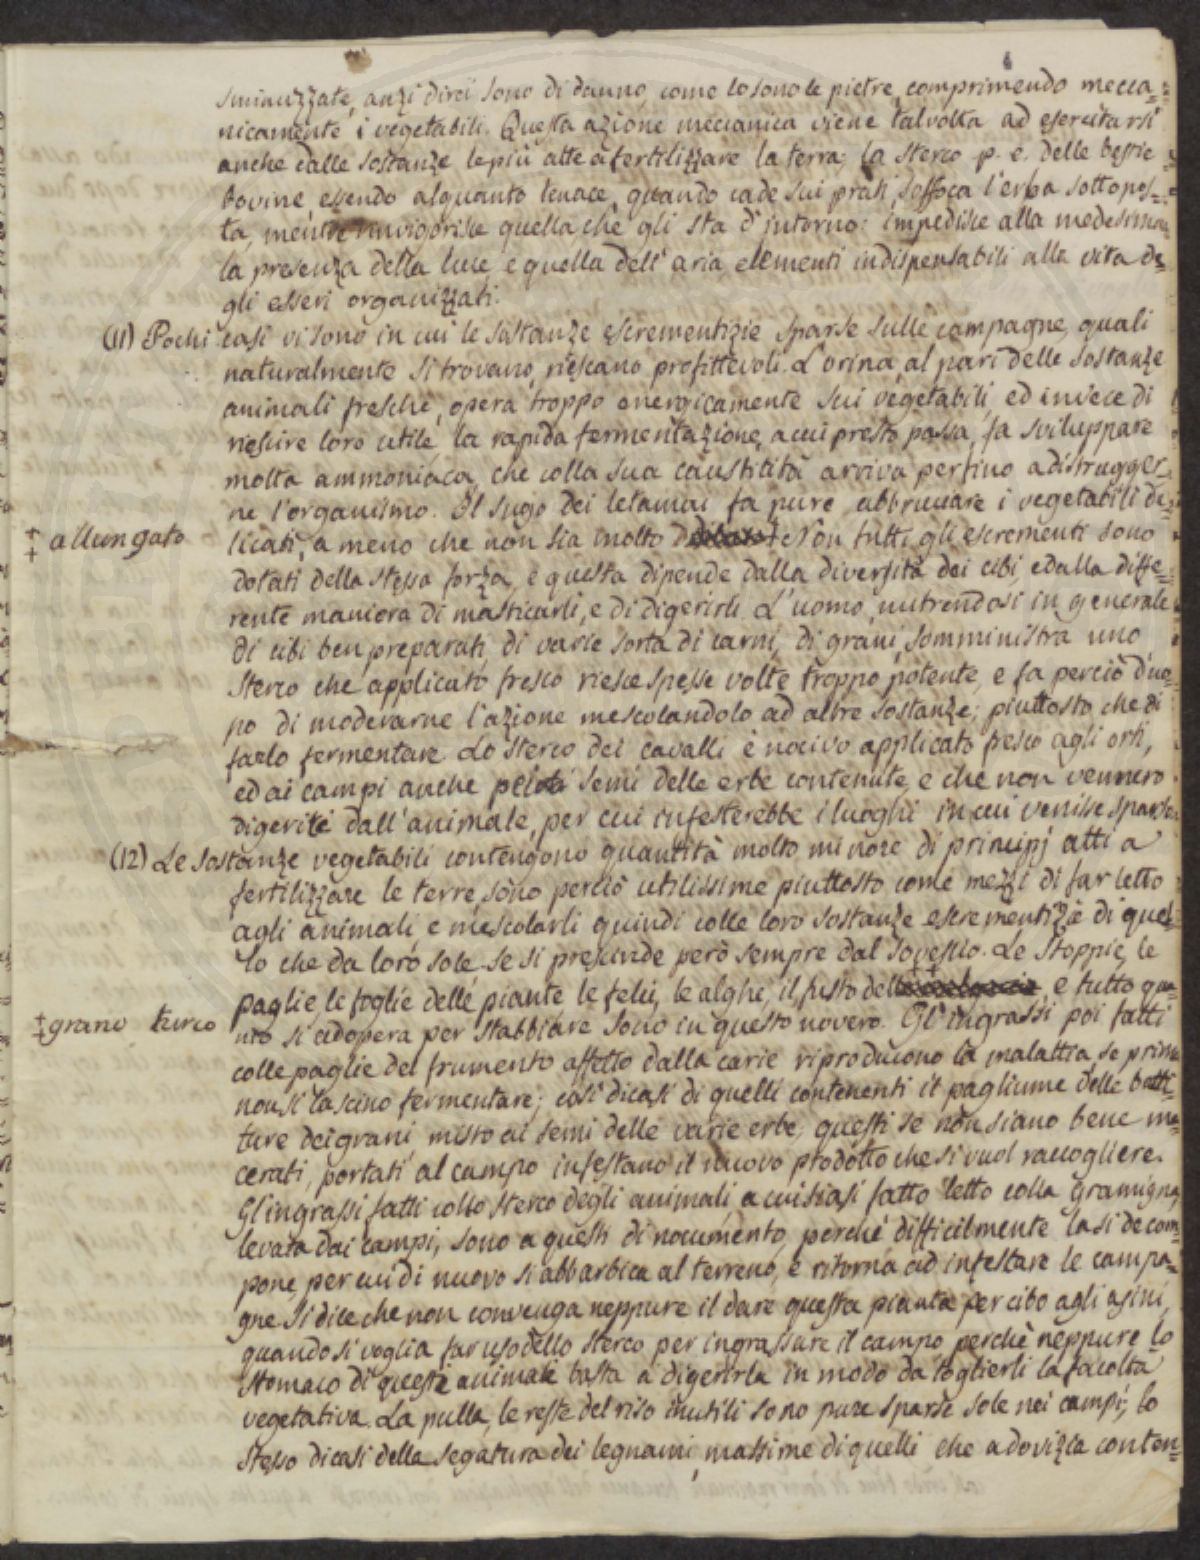 sminuzzate, anzi direi sono di danno, come lo sono le pietre, comprimendo mecca=
nicamente i vegetabili. Questa azione meccanica viene talvolta ad esercitarsi
anche dalle sostanze le più atte a fertilizzare la terra; lo sterco p. e. delle bestie
bovine, essendo alquanto tenace, quando cade sui prati, soffoca l'erba sottopos=
ta, mentre invigorisce quella che gli sta d'intorno: impedisce alla medesima
la presenza della luce, e quella dell'aria elementi indispensabili alla vita de=
gli esseri organizzati.
(11) Pochi casi vi sono in cui le sostanze escrementizie sparse sulle campagne, quali
naturalmente si trovano, riescano profittevoli. L'orina, al pari delle sostanze
animali fresche, opera troppo energicamente sui vegetabili, ed invece di
riescire loro utile, la rapida fermentazione, a cui presto passa, fa sviluppare
molta ammoniaca, che colla sua causticità arriva perfino a distrugger=
ne l'organismo. Il sugo dei letamai fa pure abbruciare i vegetabili de=
‡ allungato
licati, a meno che non sia molto Non tutti gli escrementi sono
dotati della stessa forza, e questa dipende dalla diversità dei cibi, e dalla diffe=
rente maniera di masticarli, e di digerirli. L'uomo, nutrendosi in generale
di cibi ben preparati, di varie sorta di carni, di grani, somministra uno
sterco che applicato fresco riesce spesse volte troppo potente, e fa perciò d'uo=
po di moderarne l'azione mescolandolo ad altre sostanze; piuttosto che di
farlo fermentare. Lo sterco dei cavalli è nocivo applicato fresco agli orti,
ed ai campi anche pei semi delle erbe contenute, e che non vennero
digerite dall'animale, per cui infesterebbe i luoghi in cui venisse sparso.
(12) Le sostanze vegetabili contengono quantità molto minore di principj atti a
fertilizzare le terre, sono perciò utilissime piuttosto come mezzi di far letto
agli animali, e mescolarli quindi colle loro sostanze escrementizie di quel=
lo che da loro sole se si prescinde però sempre dal sovescio. Le stoppie, le
paglie, le foglie delle piante le felci, le alghe, il fusto del e tutto qua=
‡ grano turco
nto si adopera per stabbiare sono in questo novero. Gl'ingrassi poi fatti
colle paglie del frumento affetto dalla carie riproducono la malattia se prima
non si lascino fermentare; così dicasi di quelli contenenti il pagliume delle batti=
ture dei grani misto ai semi delle varie erbe; questi se non siano bene ma=
cerati, portati al campo infestano il nuovo prodotto che si vuol raccogliere.
Gl'ingrassi fatti collo sterco degli animali a cui siasi fatto letto colla gramigna
levata dai campi, sono a questi di nocumento, perché difficilmente la si decom=
pone, per cui di nuovo si abbarbica al terreno, e ritorna ad infestare le campa=
gne. Si dice che non convenga neppure il dare questa pianta per cibo agli asini,
quando si voglia far uso dello sterco per ingrassare il campo perchè neppure lo
stomaco di queste animale basta a digerirla in modo da toglierli la facoltà
vegetativa. La pulla, le reste del riso inutili sono pure sparse sole nei campi; lo
stesso dicasi della segatura dei legnami, massime di quelli che a dovizia conten=